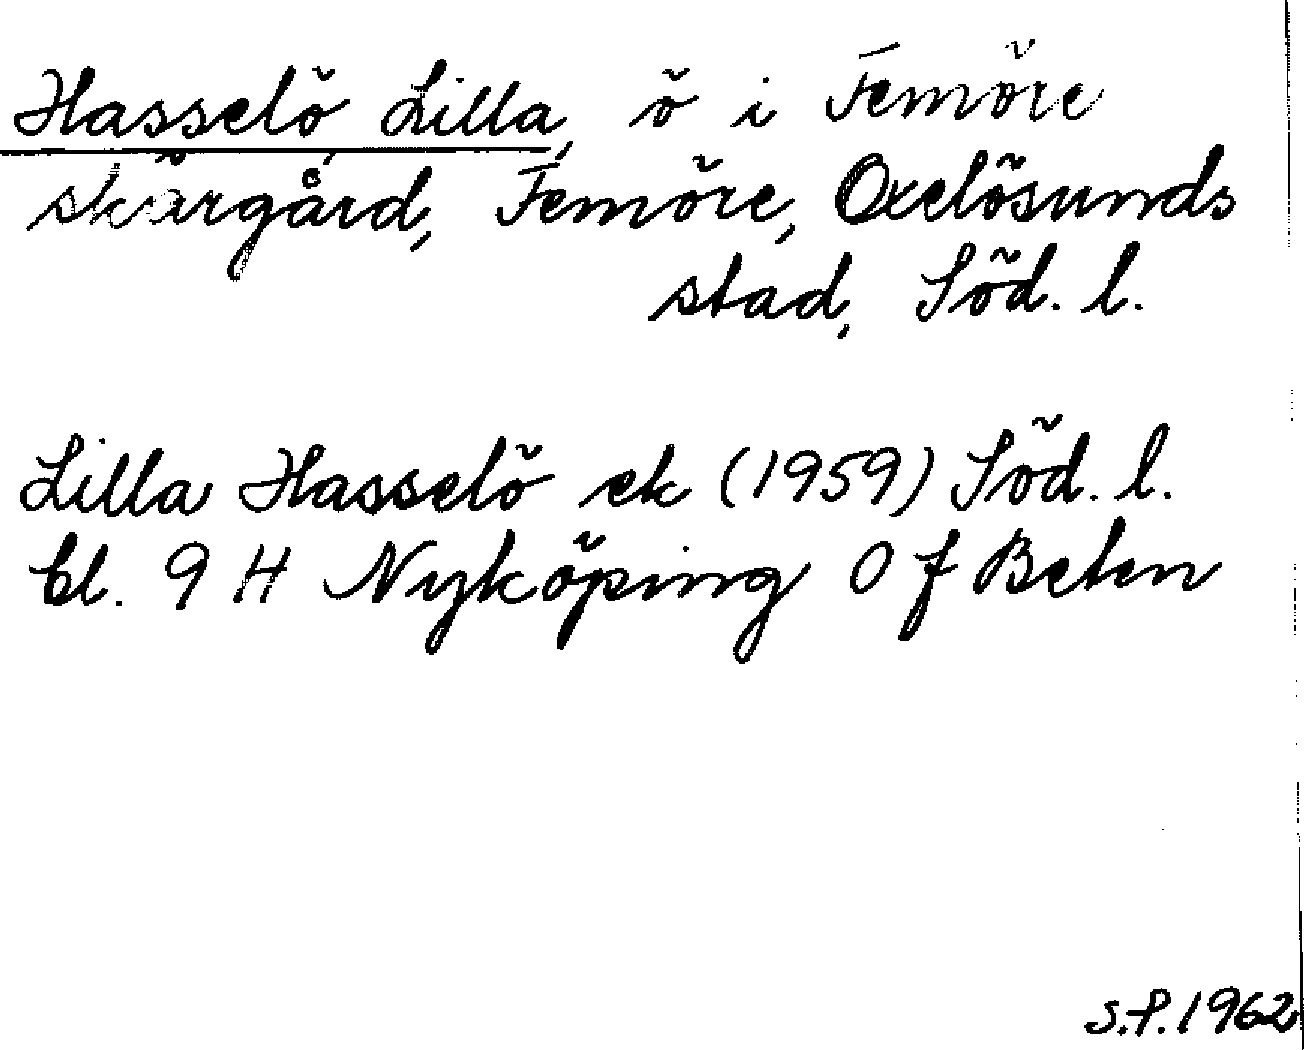 Hasselö Lilla, ö i Femöre
skärgård, Femöre, Oxelösunds
stad, Söd. l.
Lilla Hasselö ek (1959) Söd. l.
bl. 9 H Nyköping 0 f Beten
S.P. 1962